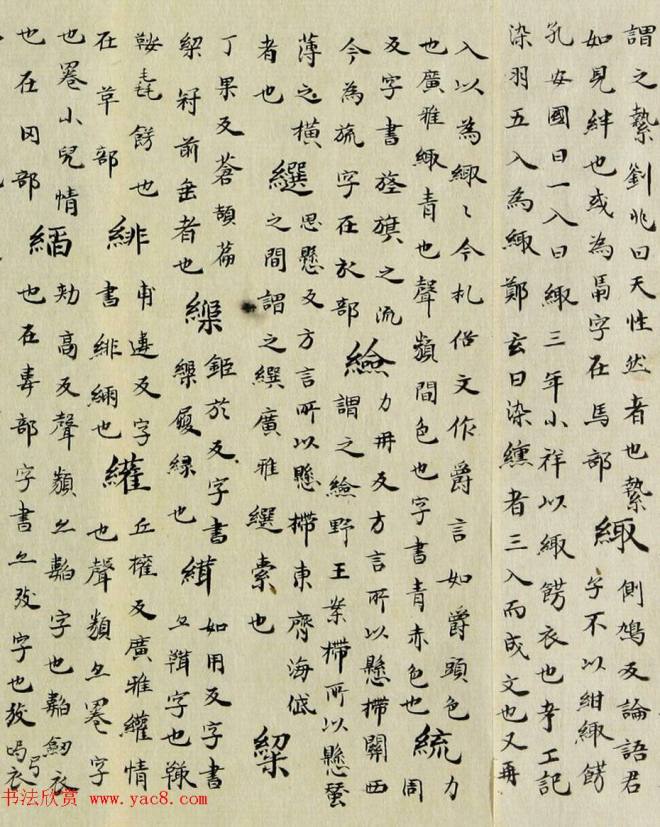 謂之縶劉兆曰天性然者也縶 側鳩反論語君
如見絆也或為馽字在馬部 緅 子不以紺緅餝
孔安國曰一入曰緅三年小祥以緅餝衣也考工記
染羽五入為緅鄭玄曰染纁者三入而成文也又再
入以為緅〻今礼俗文作爵言如爵頭色 力
也廣雅緅青也聲類間色也字書青赤色也 周
反字書旌旗之流 力冉反方言所以懸關西
今為旒字在㫃部 謂之野王案所以懸蚕
薄之橫 思懸反方言所以懸東齊海岱
者也 繏 之間謂之繏廣雅繏索也
丁果反蒼頡篇 於反字書 如用反字書
冠前垂者也 履緣也 亦字也
鞍毳餝也 甫違反字 丘權反廣雅情
在草部 緋 書緋也 也聲類亦字
也小兒情 高反聲類亦字也衣
也在网部 也在毒部字書亦字也衣
书法欣赏 www.yac8.com